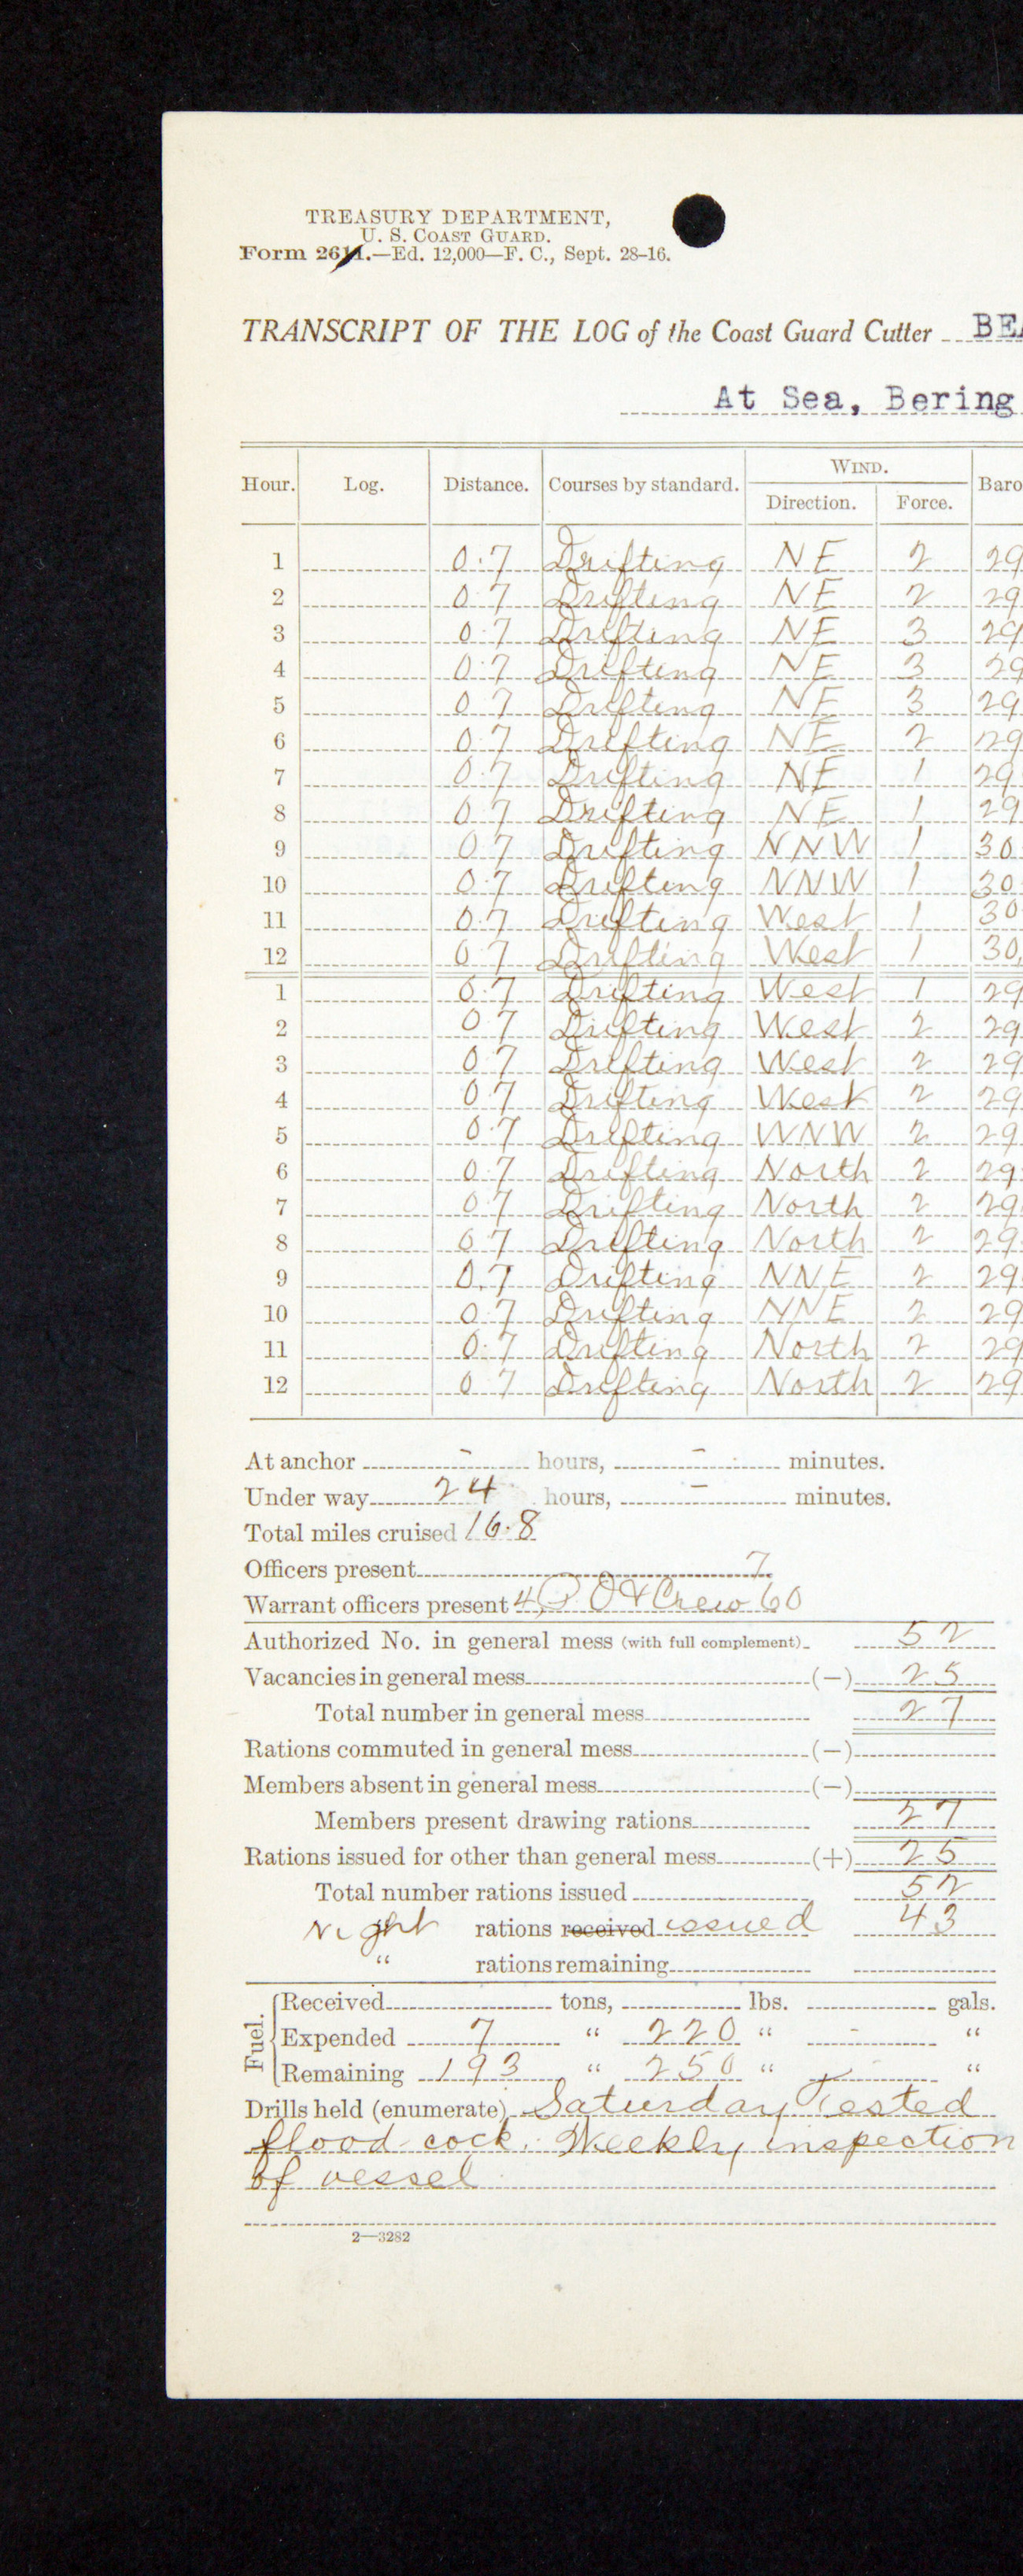 TREASURY DEPARTMENT,
U. S. COAST GUARD.
Form 261.—Ed. 12,000—F. C., Sept. 28-16.
TRANSCRIPT OF THE LOG of the Coast Guard Cutter BEA
At Sea, Bering
WIND.
Hour. Log. Distance. Courses by standard. Direction. Force. Baro
1 0.7 Drifting NE 2 29
2 0.7 Drifting NE 2 29
3 0.7 Drifting NE 3 29
4 0.7 Drifting NE 3 29
5 0 7 Drifting NE 3 29
6 0.7 Drifting NE 2 29
7 0.7 Drifting NE 1 29
8 0 7 Drifting NE 1 29
9 0 7 Drifting NNW 1 30
10 0.7 Drifting NNW 1 30
11 0.7 Drifting West 1 30
12 0 7 Drifting West 1 30
1 0.7 Drifting West 1 29
2 0 7 Drifting West 2 29
3 0 7 Drifting West 2 29
4 0 7 Drifting West 2 29
5 0.7 Drifting WNW 2 29
6 0.7 Drifting North 2 29
7 0 7 Drifting North 2 29
8 0 7 Drifting North 2 29
9 0.7 Drifting NNE 2 29
10 0 7 Drifting NNE 2 29
11 0.7 Drifting North 2 29
12 0 7 Drifting North 2 29
At anchor - hours, - minutes.
Under way 24 hours, - minutes.
Total miles cruised 16.8
Officers present 7
Warrant officers present 4, P. O & Crew 60
Authorized No. in general mess (with full complement) 52
Vacancies in general mess (—) 25
Total number in general mess 27
Rations commuted in general mess (—)
Members absent in general mess (—)
Members present drawing rations 27
Rations issued for other than general mess (+) 25
Total number rations issued 52
Night rations received issued 43
" rations remaining
Fuel.
Received tons, lbs. gals.
Expended 7 " 220 " - "
Remaining 193 " 250 " - "
Drills held (enumerate) Saturday Tested
flood cock. Weekly inspection
of vessel
2—3282